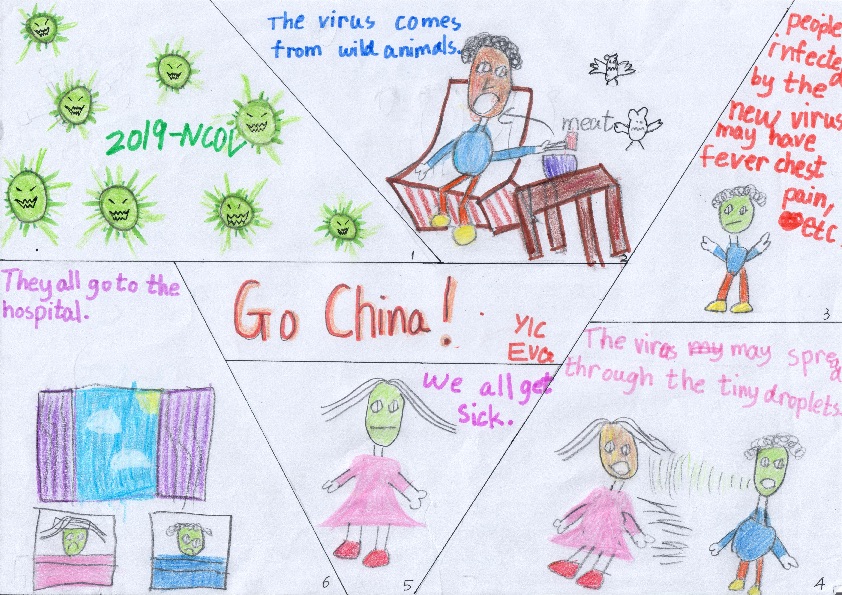 2019-NCOV
1
The virus comes
from wild animals.
meat
2
people
infected
by the
new virus
may have
fever chest
pain,
etc.
3
Go China!
YIC
Eva
The viras my may spread
through the tiny droplets.
4
We all get
sick.
5
They all go to the
hospital.
6